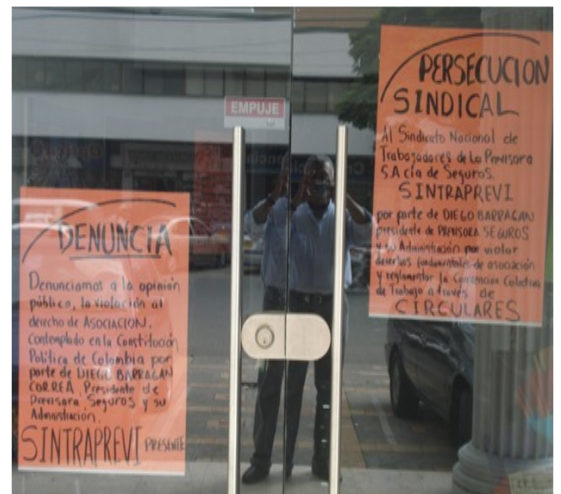 EMPUJE
DENUNCIA
Denunciamos a la opinión
pública, la violación al
derecho de ASOCIACION,
contemplado en la Constitución
Política de Colombia por
parte de DIEGO BARRAGAN
CORREA, Presidente de
Previsora Seguros y su
Administración.
SINTRAPREVI PRESENTE
PERSECUCION
SINDICAL
Al Sindicato Nacional de
Trabajadores de La Previsora
S.A cía de Seguros.
SINTRAPREVI
por parte de DIEGO BARRAGAN
presidente de PREVISORA SEGUROS
y su Administración por violar
derechos fundamentales de asociación
y reglamentar la Convención Colectiva
de Trabajo a través de
CIRCULARES